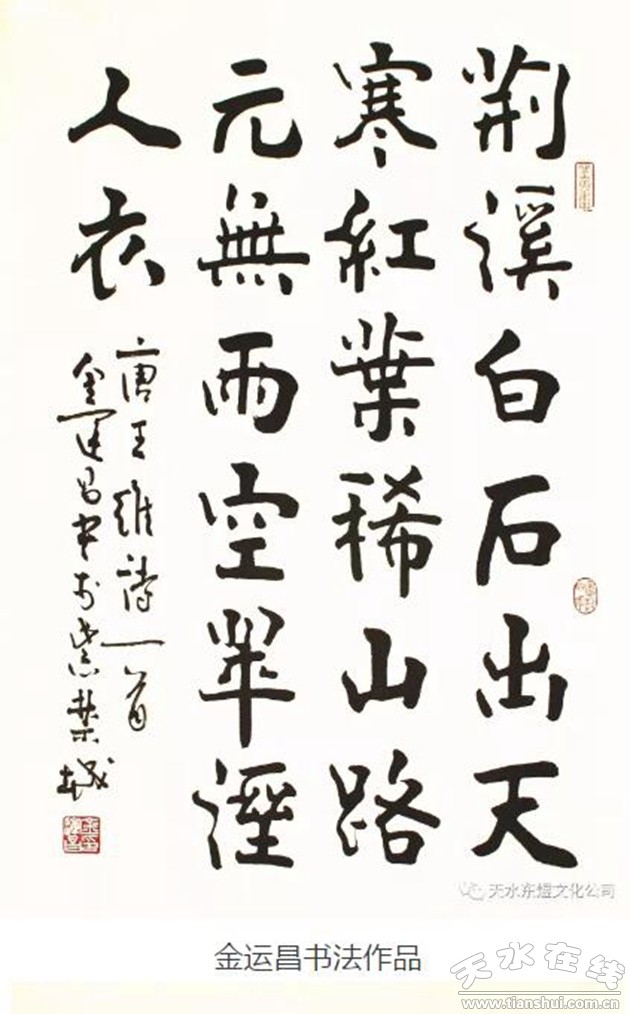 荆溪白石出天
寒紅葉稀山路
元無雨空翠溼
人衣
唐王維詩一首
金運昌书於紫禁城
天水东煜文化公司
金运昌书法作品
天水在线
www.tianshui.com.cn